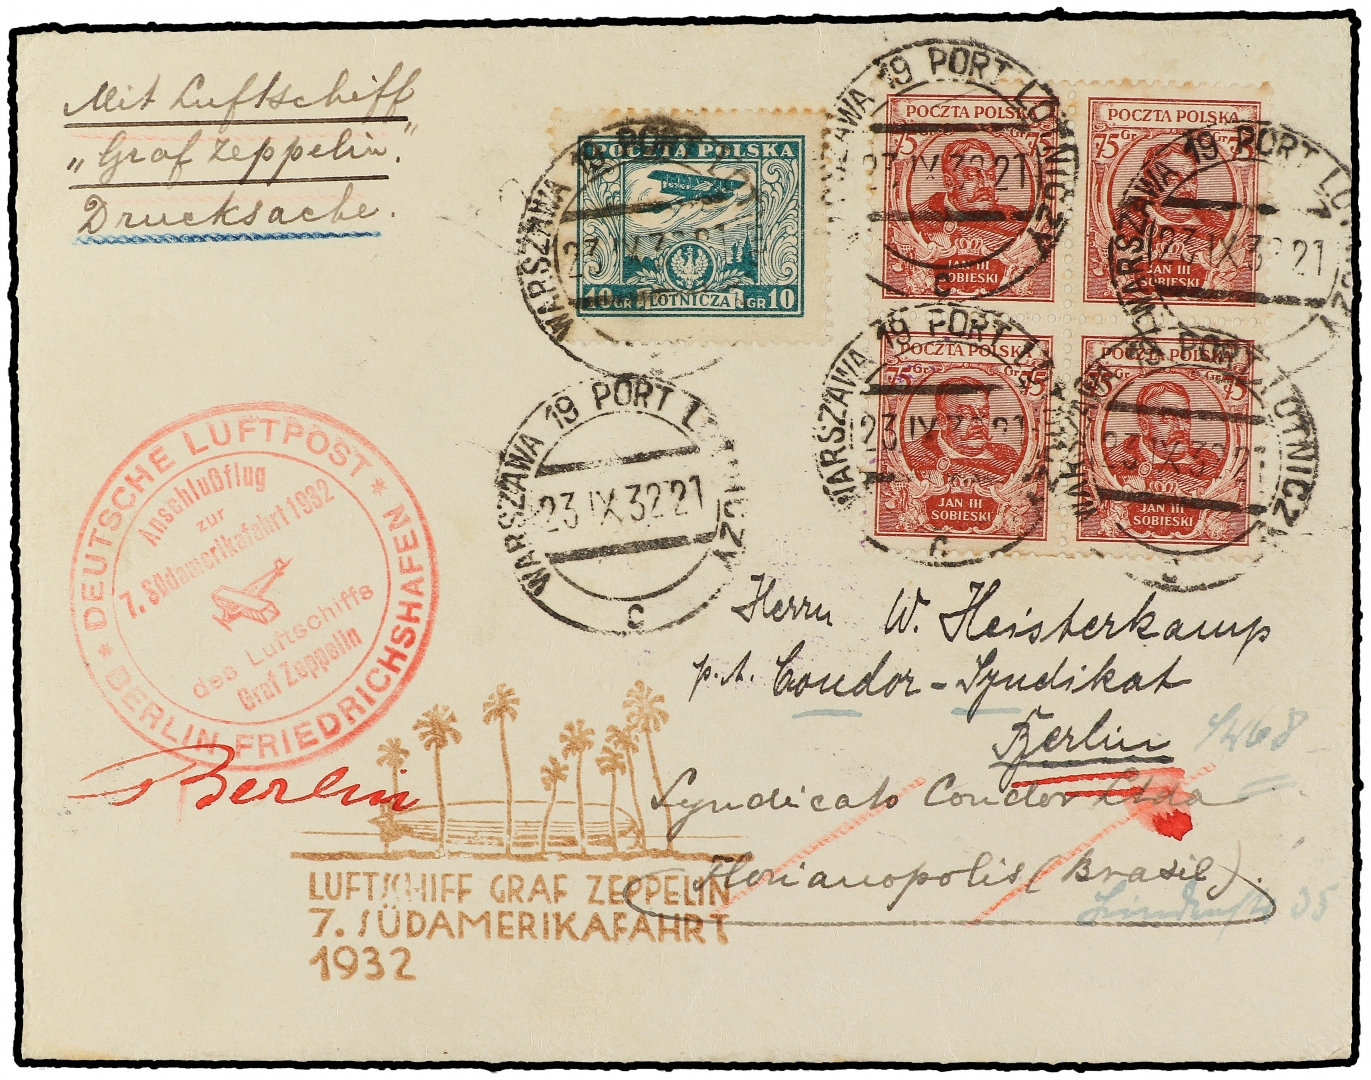 Mit Luftschiff
„Graf Zeppelin“.
Drucksache.
POCZTA POLSKA
10 GR LOTNICZA GR 10
WARSZAWA 19 PORT LOTNICZY
23 IX 32 21
POCZTA POLSKA
75 Gr Gr 75
JAN III
SOBIESKI
WARSZAWA 19 PORT LOTNICZY
23 IX 32 21
c
POCZTA POLSKA
75 Gr
JAN III
SOBIESKI
WARSZAWA 19 PORT LOTNICZY
23 IX 32 21
POCZTA POLSKA
75 Gr Gr 75
JAN III
SOBIESKI
WARSZAWA 19 PORT LOTNICZY
23 IX 32 21
c
POCZTA POLSKA
75 Gr Gr 75
JAN III
SOBIESKI
WARSZAWA 19 PORT LOTNICZY
23 IX 32 21
c
WARSZAWA 19 PORT LOTNICZY
23 IX 32 21
c
* DEUTSCHE LUFTPOST *
BERLIN-FRIEDRICHSHAFEN
Anschlußflug
zur
7. Südamerikafahrt 1932
des Luftschiffs
Graf Zeppelin
Herrn W. Heisterkamp
p. A. Condor-Syndikat
Berlin
Syndicato Condor Ltda
Florianopolis (Brasil).
Berlin
LUFTSCHIFF GRAF ZEPPELIN
7. SÜDAMERIKAFAHRT
1932